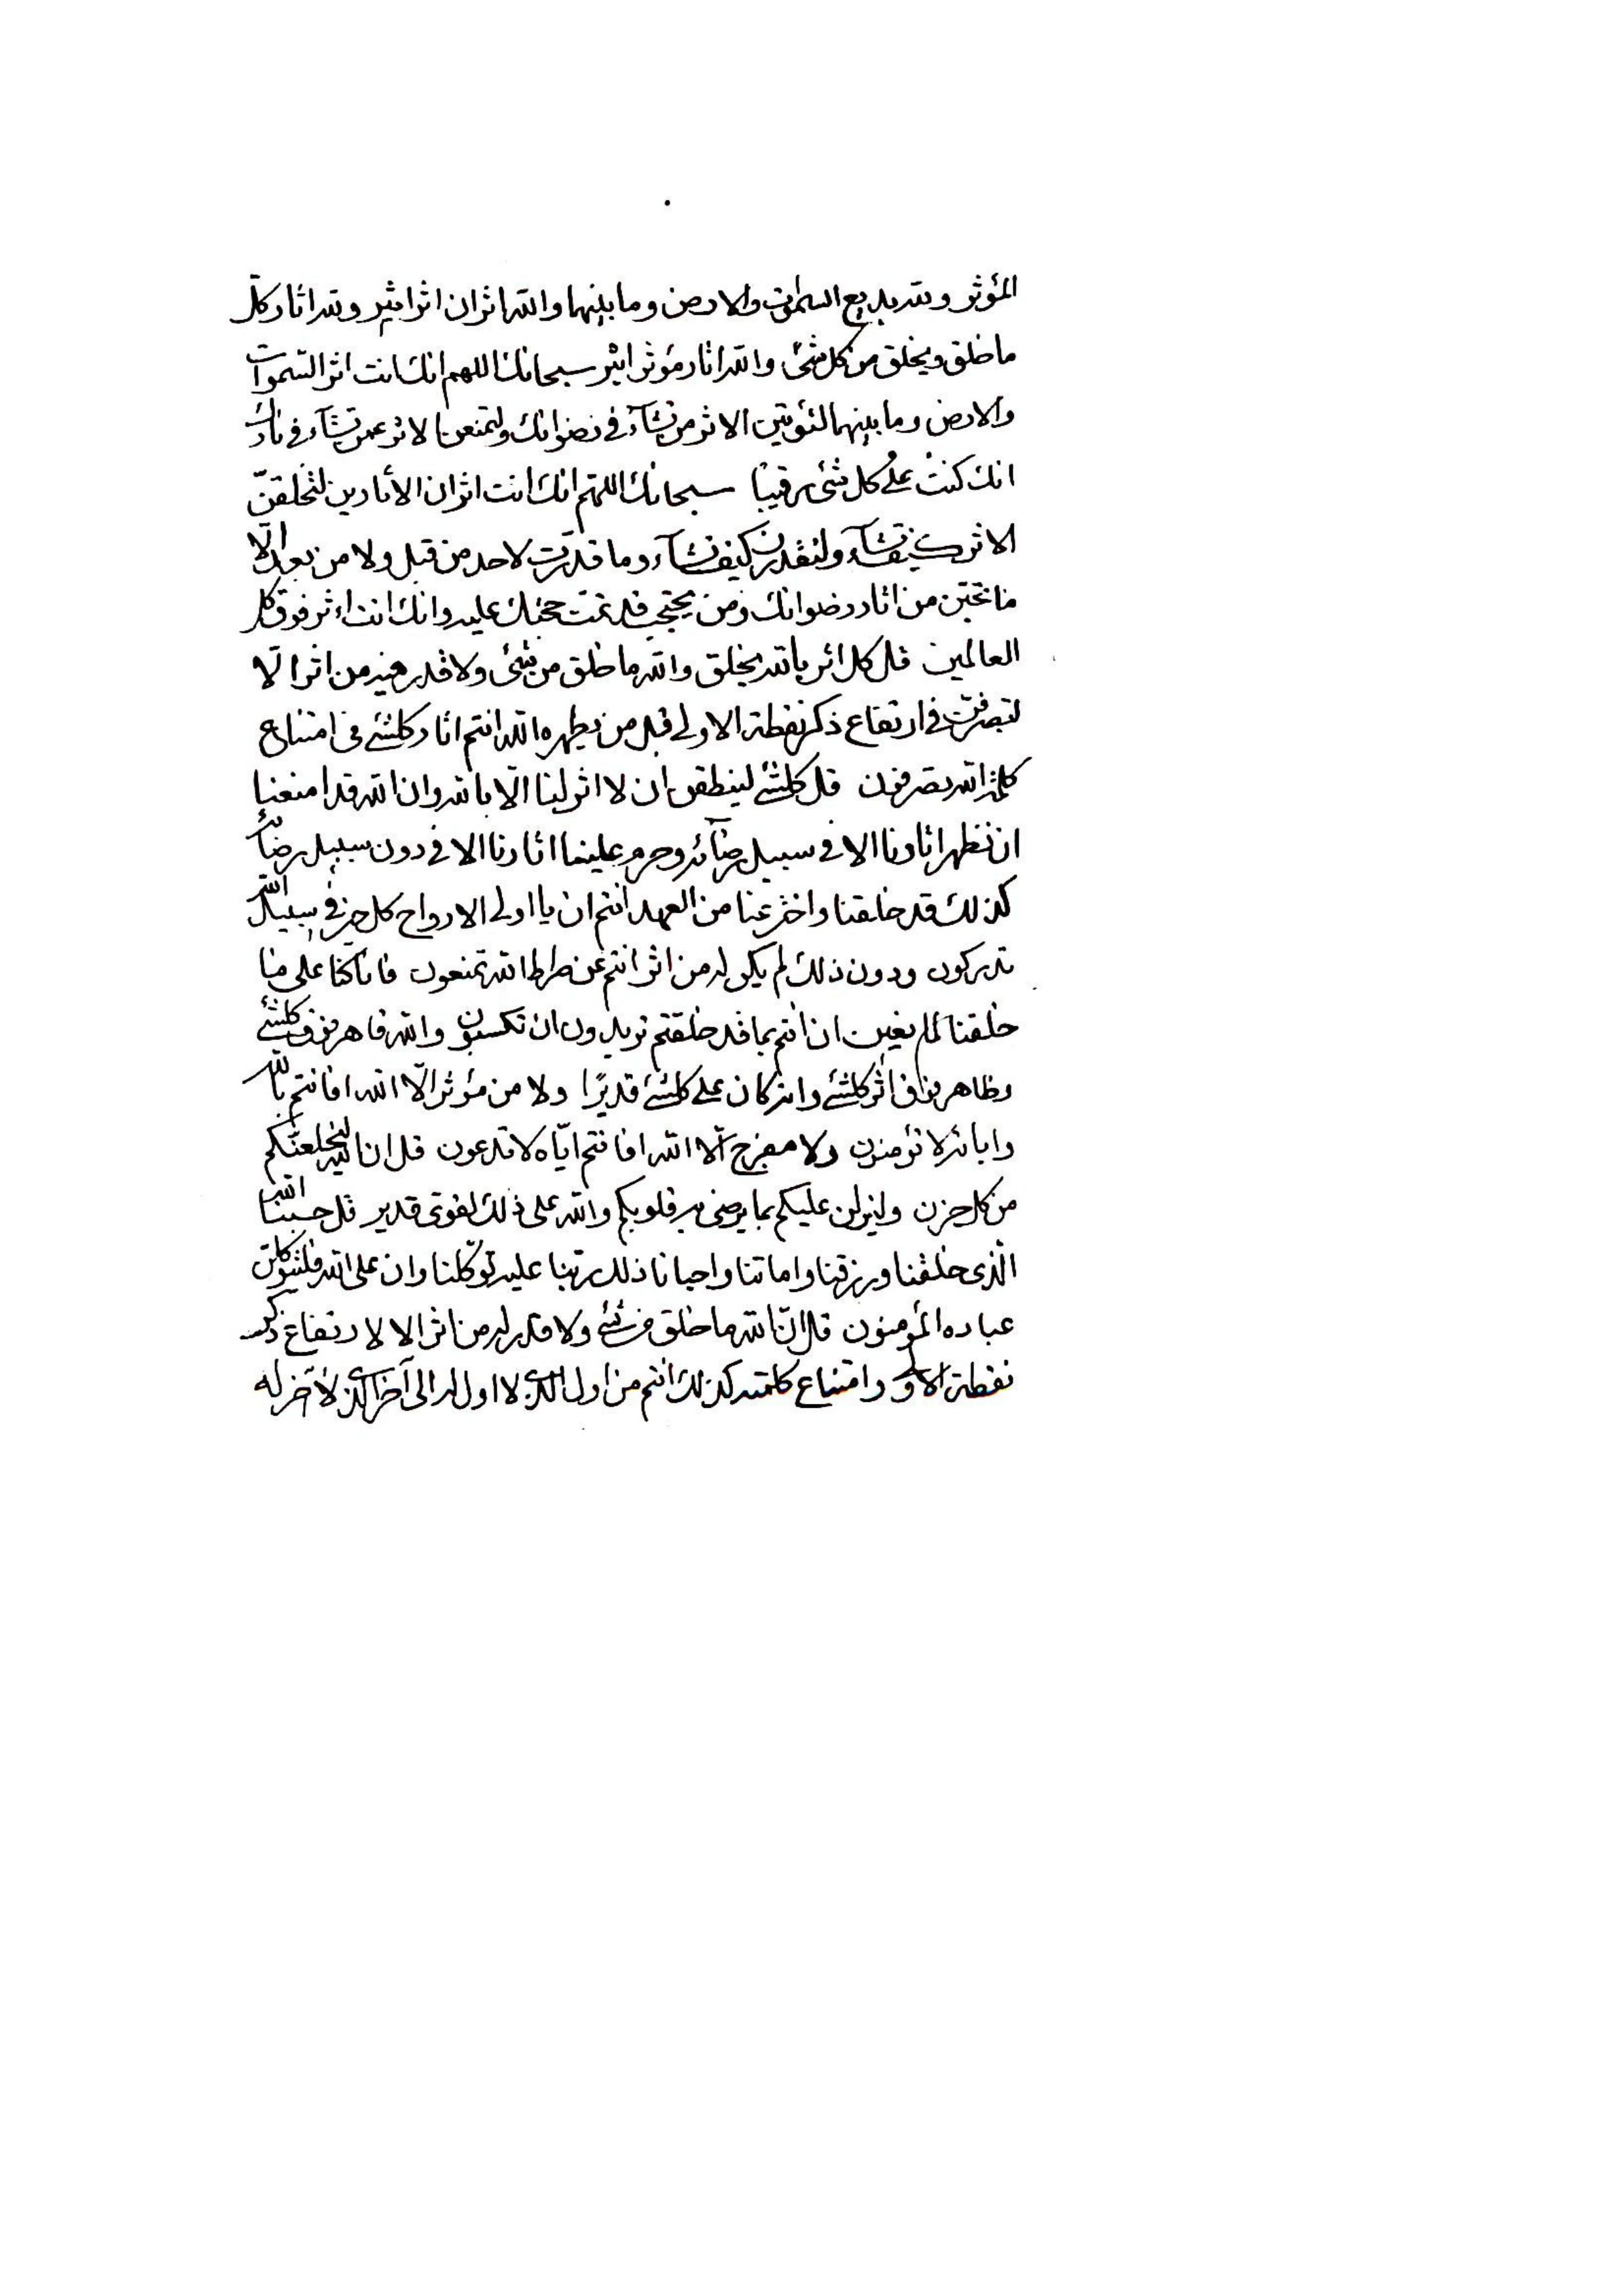 المؤثر ولله بديع السموات والارض وما بينهما والله اثران اثر اثير ولله اثار كل
ما خلق ويخلق من كل شئ والله اثار مؤثر اثير سبحانك اللهم انك انت اثر السموات
والارض وما بينهما لتؤتين الاثر من تشآء في رضوانك ولتمنعن الاثر عمن تشآء في نارك
انك كنت على كل شئ رقيبا سبحانك اللهم انك انت اثران الأثارين لتخلقن
الاثر كيف تشآء ولتقدرن كيف تشآء وما قدرت لاحد من قبل ولا من بعد الا
ما تحبن من اثار رضوانك ومن يحتجب فلتمت حجتك عليه وانك انت اءثر فوق كل
العالمين قل كل اثر بالله يخلق والله ما خلق من شئ ولا قدر فيه من اثر الا
لتصرفن في ارتفاع ذكر نقطة الاولى قبل من يظهره الله انتم اثار كلشئ في امتناع
كلمة الله تصرفون قل كلشئ لينطقن ان لا اثر لنا الا بالله وان الله قد امنعنا
ان نظهر اثارنا الا في سبيل رضآئه وحرم علينا اثارنا الا في دون سبيل رضآئه
كذلك قد خلقنا واخترعنا من العهد انتم ان يا اولى الارواح كل حزن في سبيل الله
تدركون ودون ذلك لم يكن له من اثر انتم عن صراط الله تمنعون فانا كنا على ما
خلقنا لمانعين ان انتم بما قد خلقتم تريدون ان تكسبون والله قاهر فوق كلشئ
وظاهر فوق اثر كلشئ وانه كان على كلشئ قديرا ولا من مؤثر الا الله افانتم بالله
واياته لا تؤمنون ولا مفرج الا الله افانتم اياه لا تدعون قل ان الله ليخلعنكم
من كل حزن ولينزلن عليكم بما يرضى به قلوبكم والله على ذلك لقوى قدير قل حسبنا الله
الذى خلقنا ورزقنا واماتنا واحيانا ذلك ربنا عليه توكلنا وان على الله فليتوكلن
عباده المؤمنون قل ان الله ما خلق من شئ ولا قدر له من اثر الا لارتفاع ذكر
نقطة الاولى وامتناع كلمته كذلك انتم من اول الذى لا اول له الى آخر الذى لا آخر له